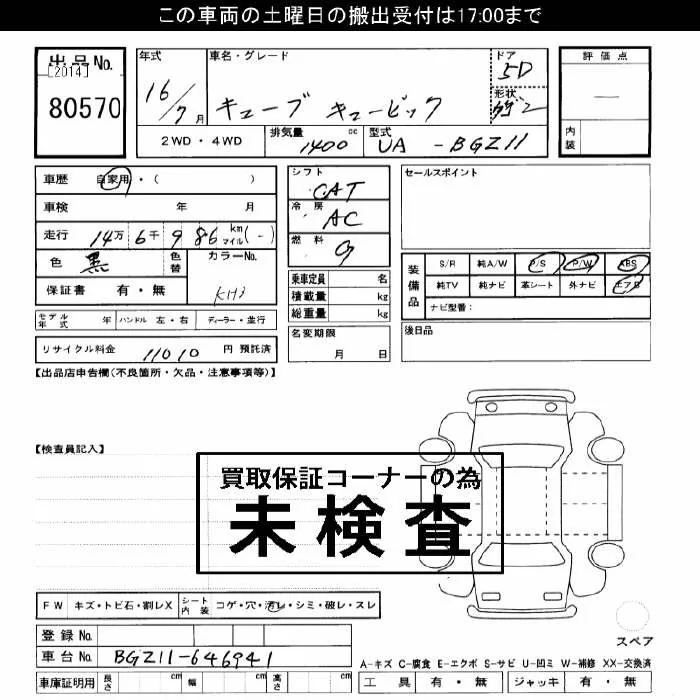 この車両の土曜日の搬出受付は17:00まで
出品No.
[2014]
80570
年式
16/7月
車名・グレード
キューブ キュービック
ドア
5D
形状
評価点
—
内装
2WD・4WD
排気量 1400 cc
型式 UA - BGZ11
車歴 自家用・( )
車検 年 月
走行 14万 6千 9 86 km マイル (-)
色 黒
色替
カラーNo.
KH3
保証書 有・無
シフト
CAT
冷房
AC
燃料
G
乗車定員 名
積載量 kg
総重量 kg
名変期限
月 日
セールスポイント
装備品
S/R 純A/W P/S P/W ABS
純TV 純ナビ 革シート 外ナビ エアB
ナビ型番:
後日品
モデル年式 年 ハンドル 左・右 ディーラー・並行
リサイクル料金 11010 円 預託済
【出品店申告欄(不良箇所・欠品・注意事項等)】
【検査員記入】
買取保証コーナーの為
未検査
FW キズ・トビ石・割レX シート内装 コゲ・穴・汚レ・シミ・破レ・スレ
登録No.
車台No. BGZ11-646941
車庫証明用 長さ cm 幅 cm 高さ cm
スペア
A-キズ C-腐食 E-エクボ S-サビ U-凹ミ W-補修 XX-交換済
工具 有・無 ジャッキ 有・無